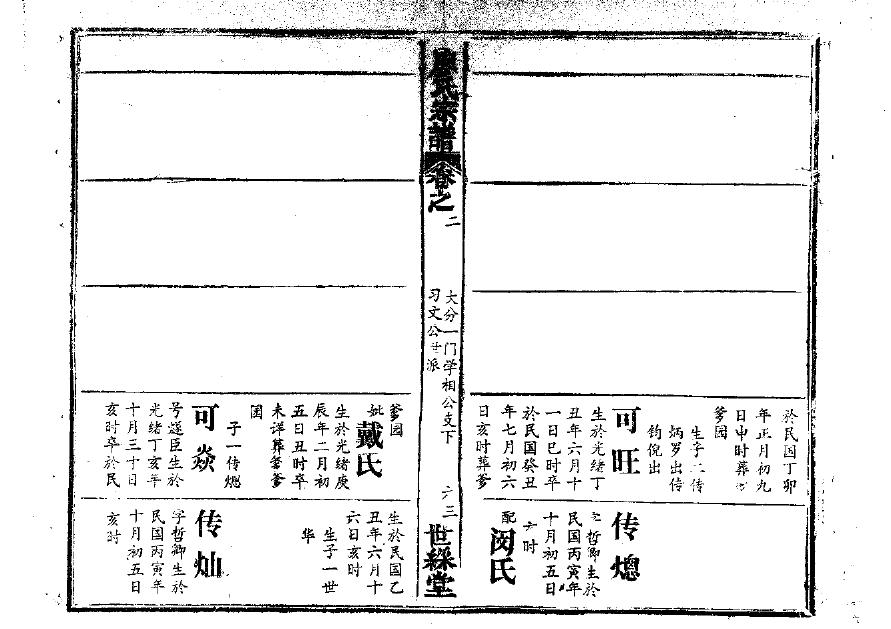 於民国丁卯
年正月初九
日申时葬
爹园
生子二传
炳罗出传
钧倪出
可旺
生於光绪丁
丑年六月十
一日巳时卒
於民国癸丑
年七月初六
日亥时葬爹
传熜
哲卿生於
民国丙寅年
十月初五日
时
配闵氏
氏宗譜
卷之二
大分一门学相公支下
习文公世派
六三
世綵堂
爹园
妣戴氏
生於光绪庚
辰年二月初
五日丑时卒
未详葬爹爹
园
子一传熜
可焱
号臣生於
光绪丁亥年
十月三十日
亥时卒於民
生於民国乙
丑年六月十
六日亥时
生子一世
华
传灿
字哲卿生於
民国丙寅年
十月初五日
亥时